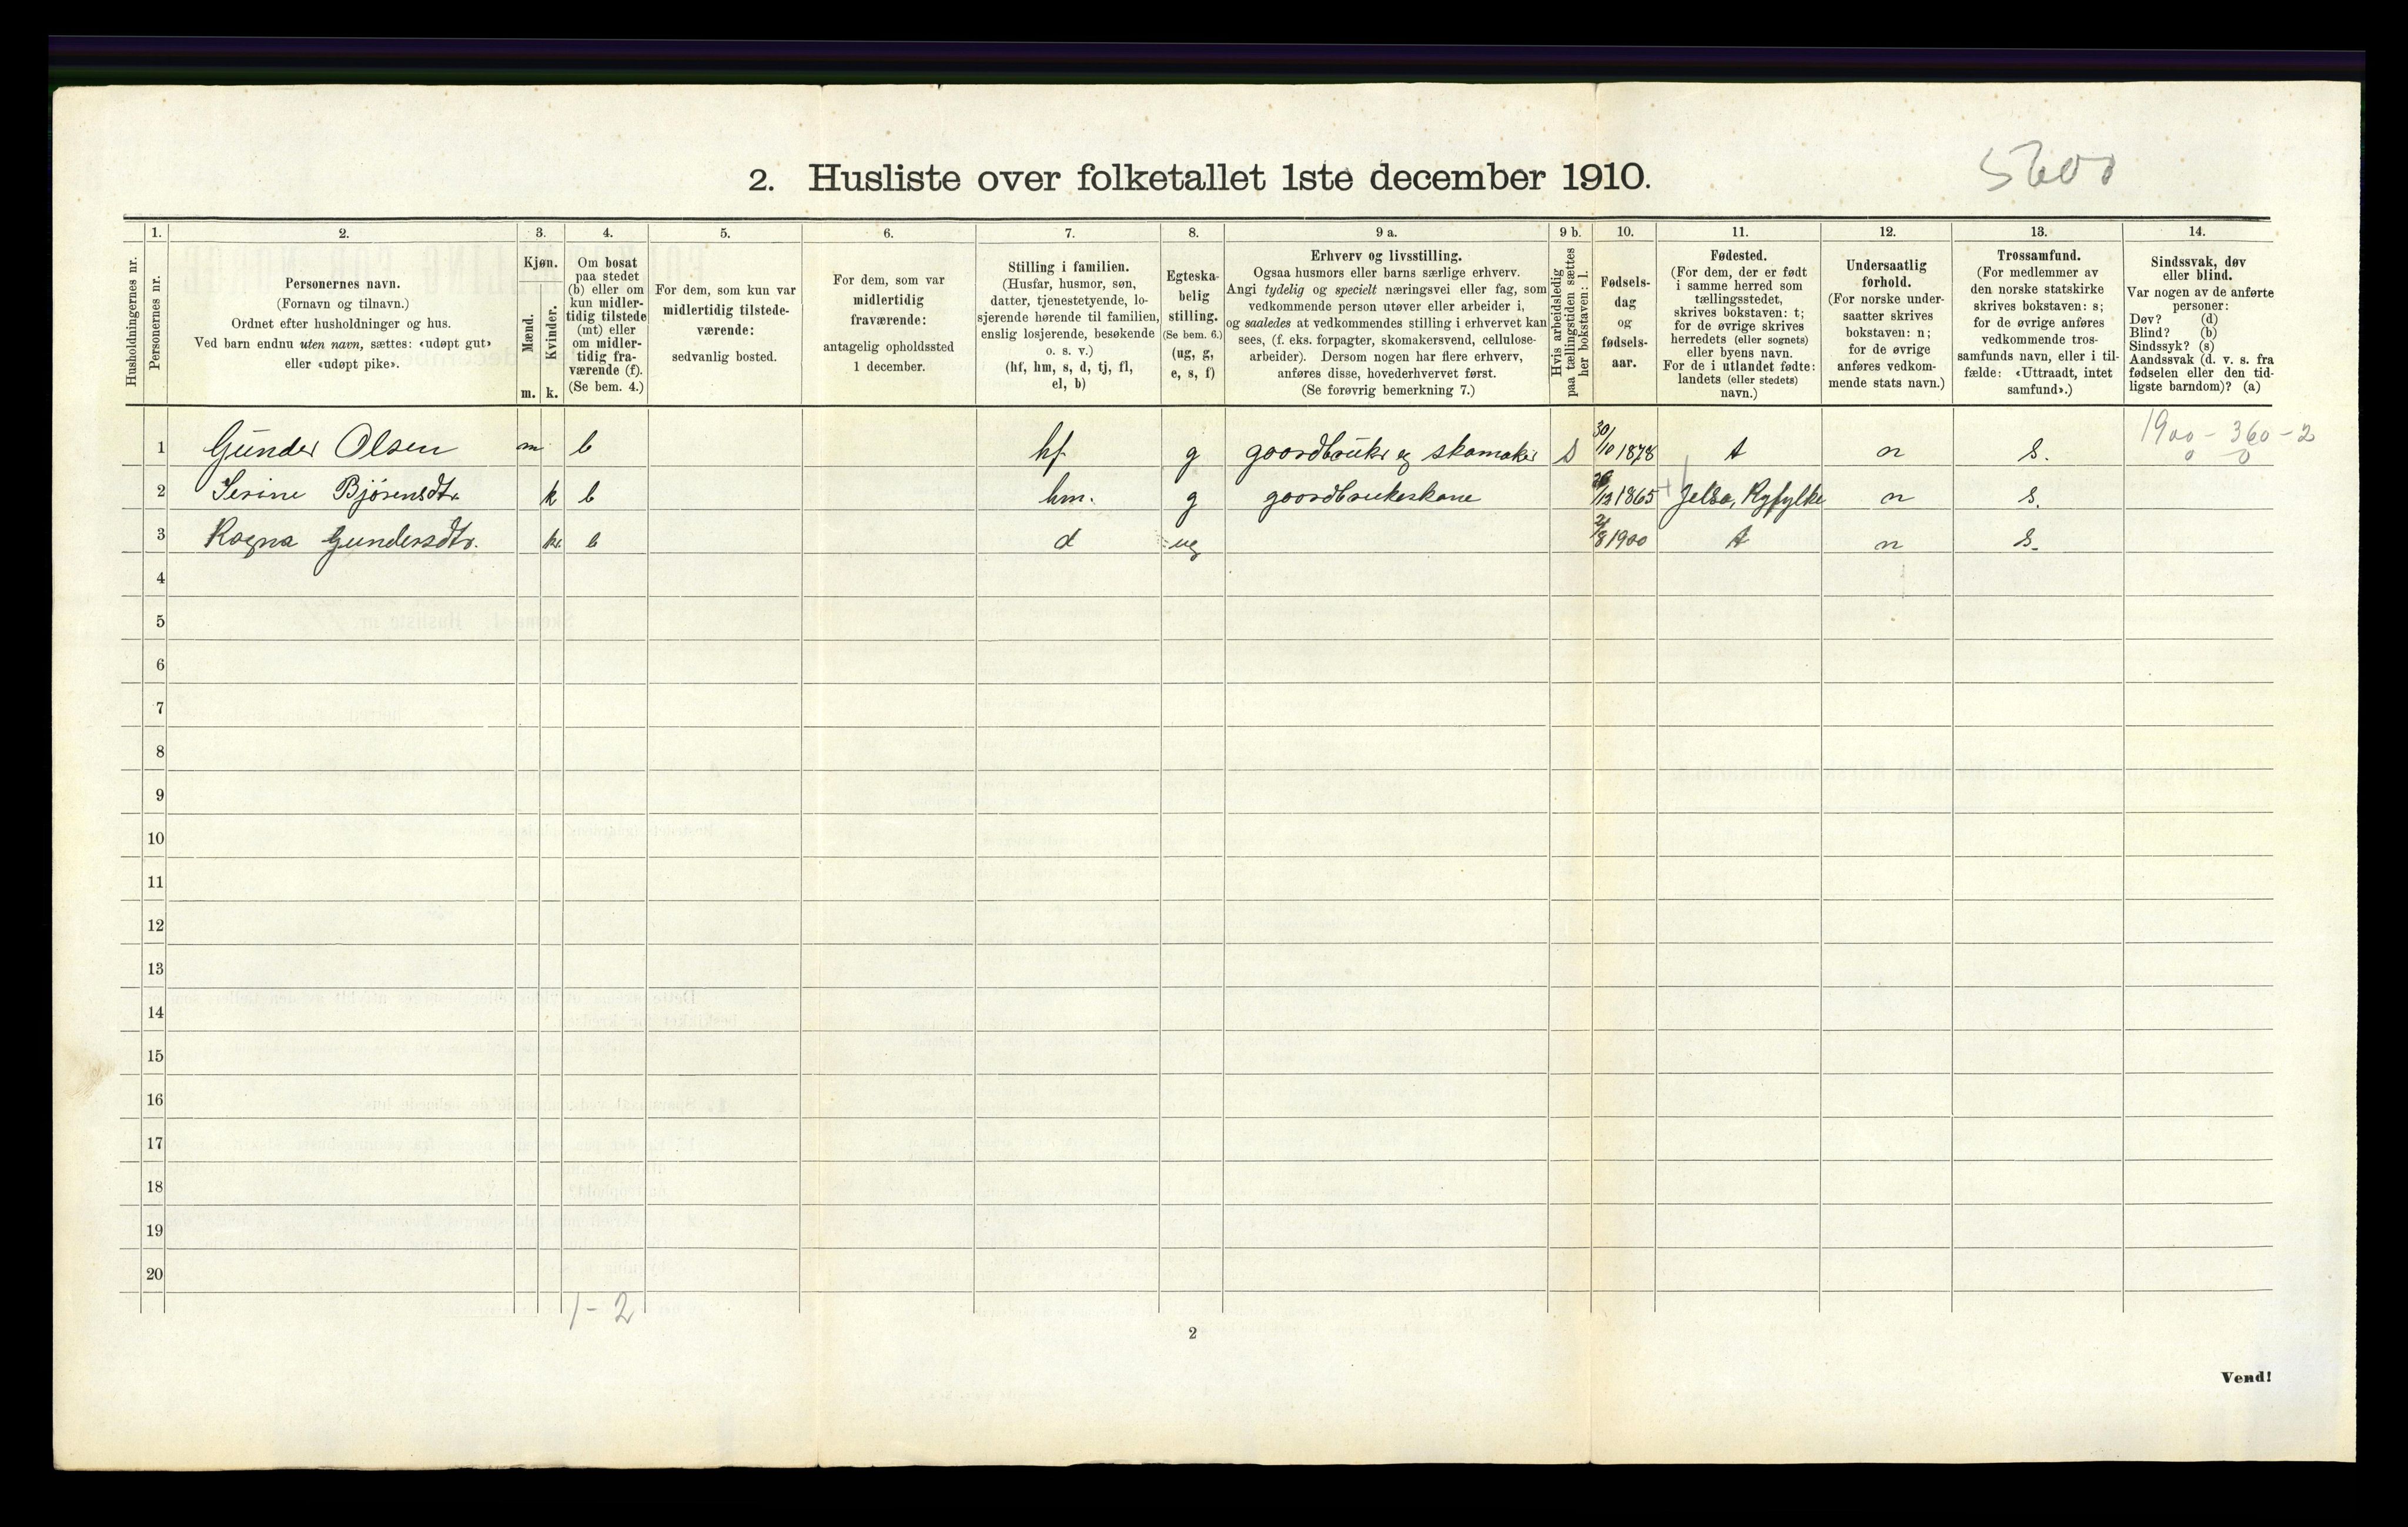 2. Husliste over folketallet 1ste december 1910.
5600
Husholdningernes nr.
1.
Personernes nr.
2.
Personernes navn.
(Fornavn og tilnavn.)
Ordnet efter husholdninger og hus.
Ved barn endnu uten navn, sættes: «udøpt gut»
eller «udøpt pike».
3.
Kjøn.
Mænd.
Kvinder.
m. k.
4.
Om bosat
paa stedet
(b) eller om
kun midler-
tidig tilstede
(mt) eller
om midler-
tidig fra-
værende (f).
(Se bem. 4.)
5.
For dem, som kun var
midlertidig tilstede-
værende:
sedvanlig bosted.
6.
For dem, som var
midlertidig
fraværende:
antagelig opholdssted
1 december.
7.
Stilling i familien.
(Husfar, husmor, søn,
datter, tjenestetyende, lo-
sjerende hørende til familien,
enslig losjerende, besøkende
o. s. v.)
(hf, hm, s, d, tj, fl,
el, b)
8.
Egteska-
belig
stilling.
(Se bem. 6.)
(ug, g,
e, s, f)
9 a.
Erhverv og livsstilling.
Ogsaa husmors eller barns særlige erhverv.
Angi tydelig og specielt næringsvei eller fag, som
vedkommende person utøver eller arbeider i,
og saaledes at vedkommendes stilling i erhvervet kan
sees, (f. eks. forpagter, skomakersvend, cellulose-
arbeider). Dersom nogen har flere erhverv,
anføres disse, hovederhvervet først.
(Se forøvrig bemerkning 7.)
9 b.
Hvis arbeidsledig
paa tællingstiden sættes
her bokstaven: l.
10.
Fødsels-
dag
og
fødsels-
aar.
11.
Fødested.
(For dem, der er født
i samme herred som
tællingsstedet,
skrives bokstaven: t;
for de øvrige skrives
herredets (eller sognets)
eller byens navn.
For de i utlandet fødte:
landets (eller stedets)
navn.)
12.
Undersaatlig
forhold.
(For norske under-
saatter skrives
bokstaven: n;
for de øvrige
anføres vedkom-
mende stats navn.)
13.
Trossamfund.
(For medlemmer av
den norske statskirke
skrives bokstaven: s;
for de øvrige anføres
vedkommende tros-
samfunds navn, eller i til-
fælde: «Uttraadt, intet
samfund».)
14.
Sindssvak, døv
eller blind.
Var nogen av de anførte
personer:
Døv? (d)
Blind? (b)
Sindssyk? (s)
Aandssvak (d. v. s. fra
fødselen eller den tid-
ligste barndom)? (a)
1900 - 360 - 2
0 0
1 Gunder Olsen m b hf g gaardbruker og skomaker S 30/10 1878 t n s.
2 Serine Bjørensdtr. k b hm. g gaardbrukeskone /12 1865 Jelsa, Ryfylke n s.
3 Ragna Gundersdtr. k. b d ug /8 1900 t n s.
4
5
6
7
8
9
10
11
12
13
14
15
16
17
18
19
20
1 - 2
2
Vend!